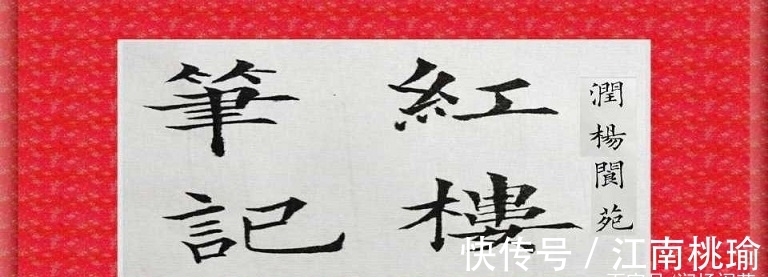 潤楊閬苑
紅樓
筆記
快传号 / 江南桃瑜